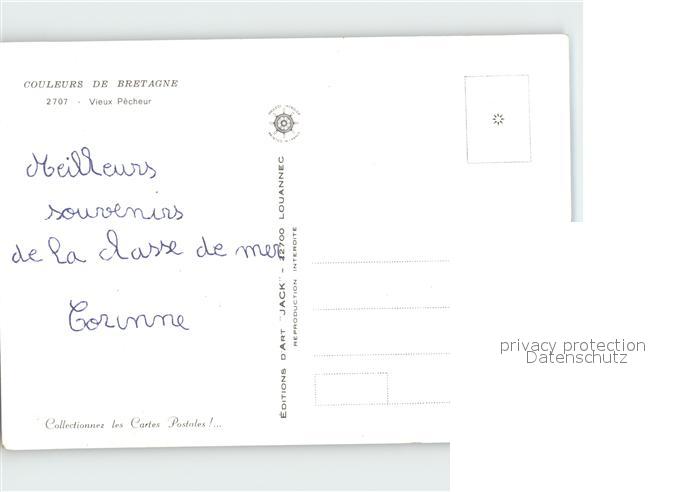 COULEURS DE BRETAGNE
2707 - Vieux Pêcheur
Meilleurs
souvenirs
de la classe de mer
Corinne
Collectionnez les Cartes Postales !...
EDITIONS D'ART "JACK" - 22700 LOUANNEC
REPRODUCTION INTERDITE
privacy protection
Datenschutz